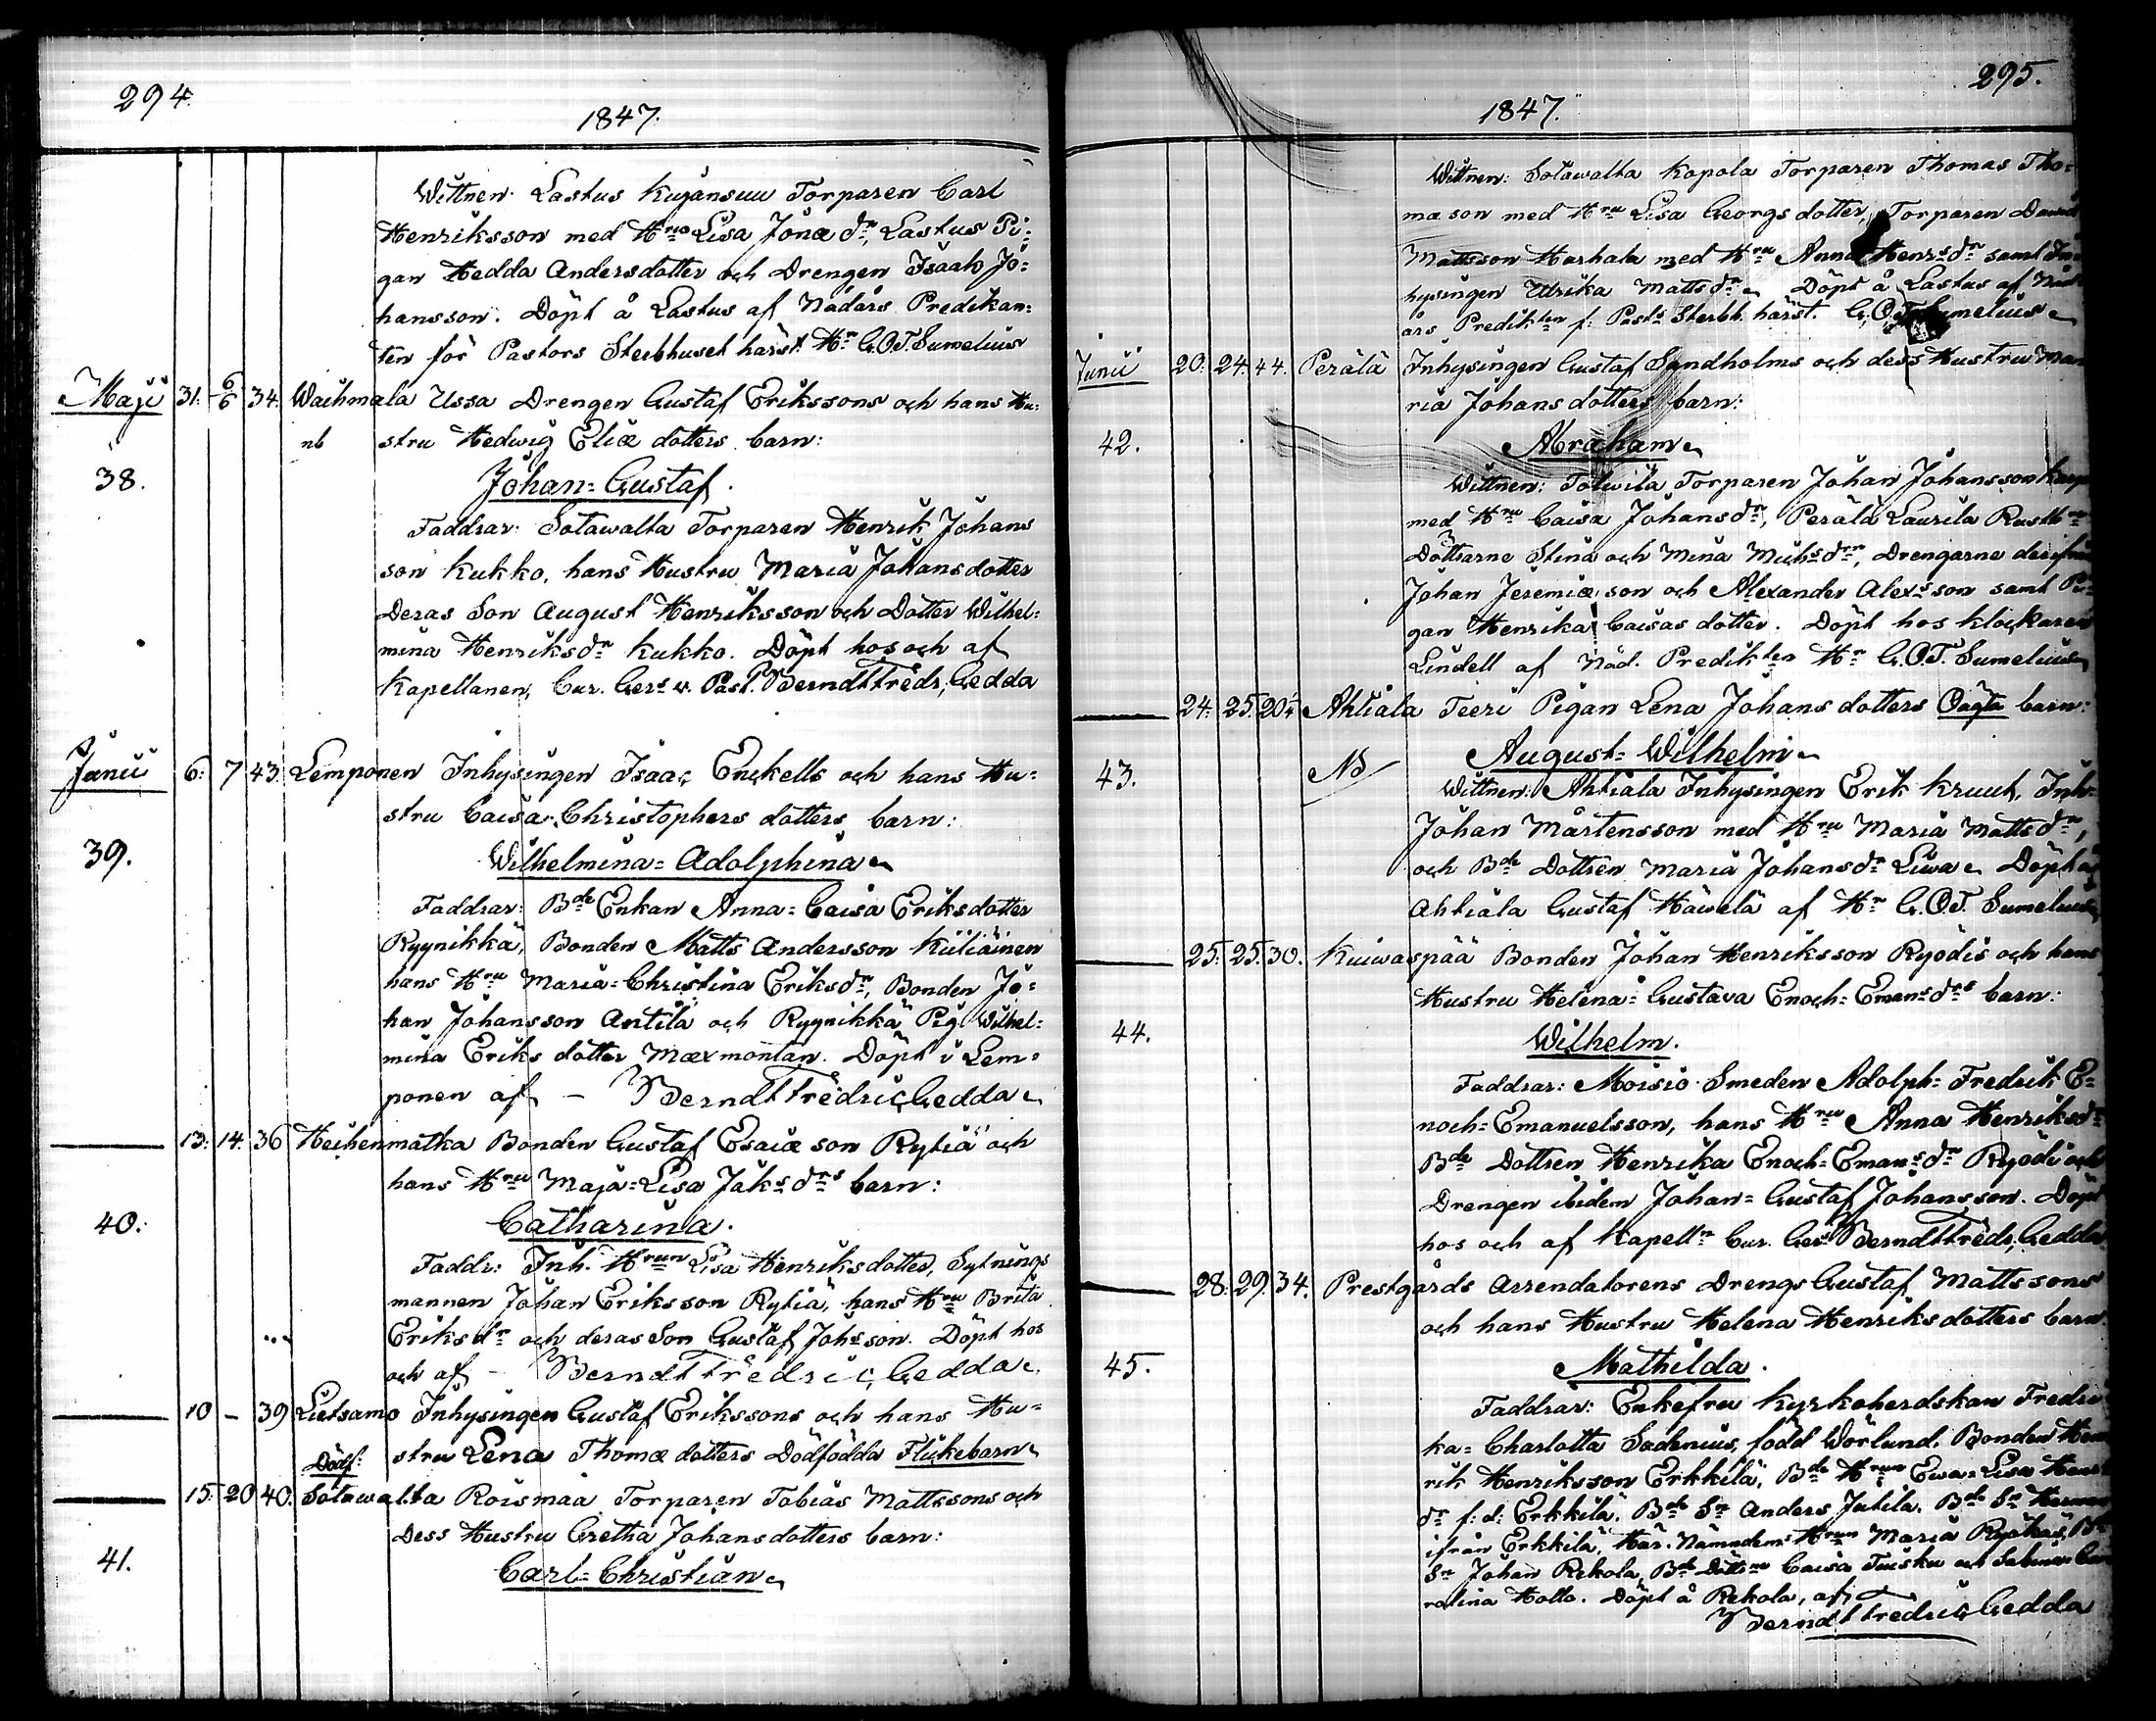 294.
1847.
Wittnen: Lastus Kujansuu Torparen Carl
Henriksson med Hru Lisa Jonæ dr, Lastus Pi=
gan Hedda Andersdotter och Drengen Isaak Jo=
hansson. Döpt å Lastus af Nådårs Predikan=
ten för Pastors Sterbhuset härst. Hr G.O.T. Sumelius
Maji 31. 6/6 34. Waihmala Ussa Drengen Gustaf Erikssons och hans Hu=
nb stru Hedwig Eliæ dotters barn:
38. Johan=Gustaf.
Faddrar: Sotawalta Torparen Henrik Johans
son Kukko, hans Hustru Maria Johansdotter
Deras Son August Henriksson och Dotter Wilhel=
mina Henriksdr Kukko. Döpt hos och af
Kapellanen, Cur. Gers v. Past. Berndt Fredr. Gedda
Junii 6. 7 43. Lemponen Inhysingen Isaac Enckells och hans Hu=
stru Caisa Christophers dotters barn:
39. Wilhelmina=Adolphina
Faddrar: Bde Enkan Anna=Caisa Eriksdotter
Ryynikkä, Bonden Matts Andersson Kiiliäinen
hans Hru Maria=Christina Eriksdr, Bonden Jo=
han Johansson Antila och Ryynikkä Pig. Wilhel=
mina Eriks dotter Maxmontan. Döpt i Lem=
ponen af — Berndt Fredric Gedda
13. 14. 36 Heihenmatka Bonden Gustaf Esaiæ son Rytiä och
hans Hru Maja=Lisa Jaks drs barn:
40. Catharina.
Faddr: Inh. Hrun Lisa Henriksdotter, Sytnings
mannen Johan Eriksson Rytiä, hans Hru Brita
Eriksdr och deras Son Gustaf Johsson. Döpt hos
och af — Berndt Fredric Gedda
10 — 39 Lietsamo Inhysingen Gustaf Erikssons och hans Hu=
Dödf: stru Lena Thomæ dotters Dödfödda Flickebarn
15. 20 40. Sotawalta Roismaa Torparen Tobias Mattssons och
Dess Hustru Gretha Johansdotters barn:
41. Carl=Christian
295.
1847.
Wittnen: Sotawalta Kopola Torparen Thomas Tho=
mæ son med Hru Lisa Georgs dotter, Torparen
Mattsson Harhala med Hru Anna Henrs dr samt In=
hysingen Ulrika Mattsdr. Döpt å Lastus af Nåd
års Predikten f. Past. Sterbh. härst. G.O.T. Sumelius
Junii 20. 24. 44. Perälä Inhysingen Gustaf Sandholms och dess Hustru Ma
ria Johans dotters barn:
42. Abraham
Wittnen: Tolwila Torparen Johan Johansson
med Hru Caisa Johansdr, Perälä Laurila Rusth
Döttrarne Stina och Mina Michsdrr, Drengarne derifrån
Johan Jeremiæ son och Alexander Alexsson samt Pi=
gan Henrika Caisas dotter. Döpt hos Klockaren
Lindell af Nåd. Predikten Hr G.O.T. Sumelius
24. 25. 20¼ Ahtiala Teeri Pigan Lena Johans dotters Oägta barn:
43. Nb August=Wilhelm
Wittnen: Ahtiala Inhysingen Erik Kruut, Inh.
Johan Mårtensson med Hru Maria Mattsdr,
och Bde Dottren Maria Johansdr Liwa. Döpt
Ahtiala Gustaf Häwelä af Hr G.O.T. Sumelius
25. 25. 30. Kuiwaspää Bonden Johan Henriksson Ryödis och hans
Hustru Helena=Gustava Enoch=Emans drs barn:
44. Wilhelm.
Faddrar: Moisio Smeden Adolph=Fredrik E=
noch=Emanuelsson, hans Hru Anna Henriksdr
Bde Dottren Henrika Enoch=Emansdr Ryödi och
Drengen ibidem Johan=Gustaf Johansson. Döpt
hos och af Kapelln Cur. Gers Berndt Fredr. Gedda
28. 29. 34. Prestgårds Arrendatorens Drengs Gustaf Mattssons
och hans Hustru Helena Henriksdotters barn
45. Mathilda.
Faddrar: Enkefru Kyrkoherdskan Fredri
ka=Charlotta Sadenius, född Wörlund. Bonden Hen
rik Henriksson Erkkilä, Bde Hrun Ewa=Lisa Henr
dr f: d: Erkkilä. Bde Sn Anders Jutila. Bde Sn Herman
ifrån Erkkilä, Här. Nämndem. Hrun Maria
Sn Johan Rekola, Bde Dottrne Caisa Tuisku och Sabina=Ca
rolina Hollo. Döpt å Rekola, af
Berndt Fredric Gedda